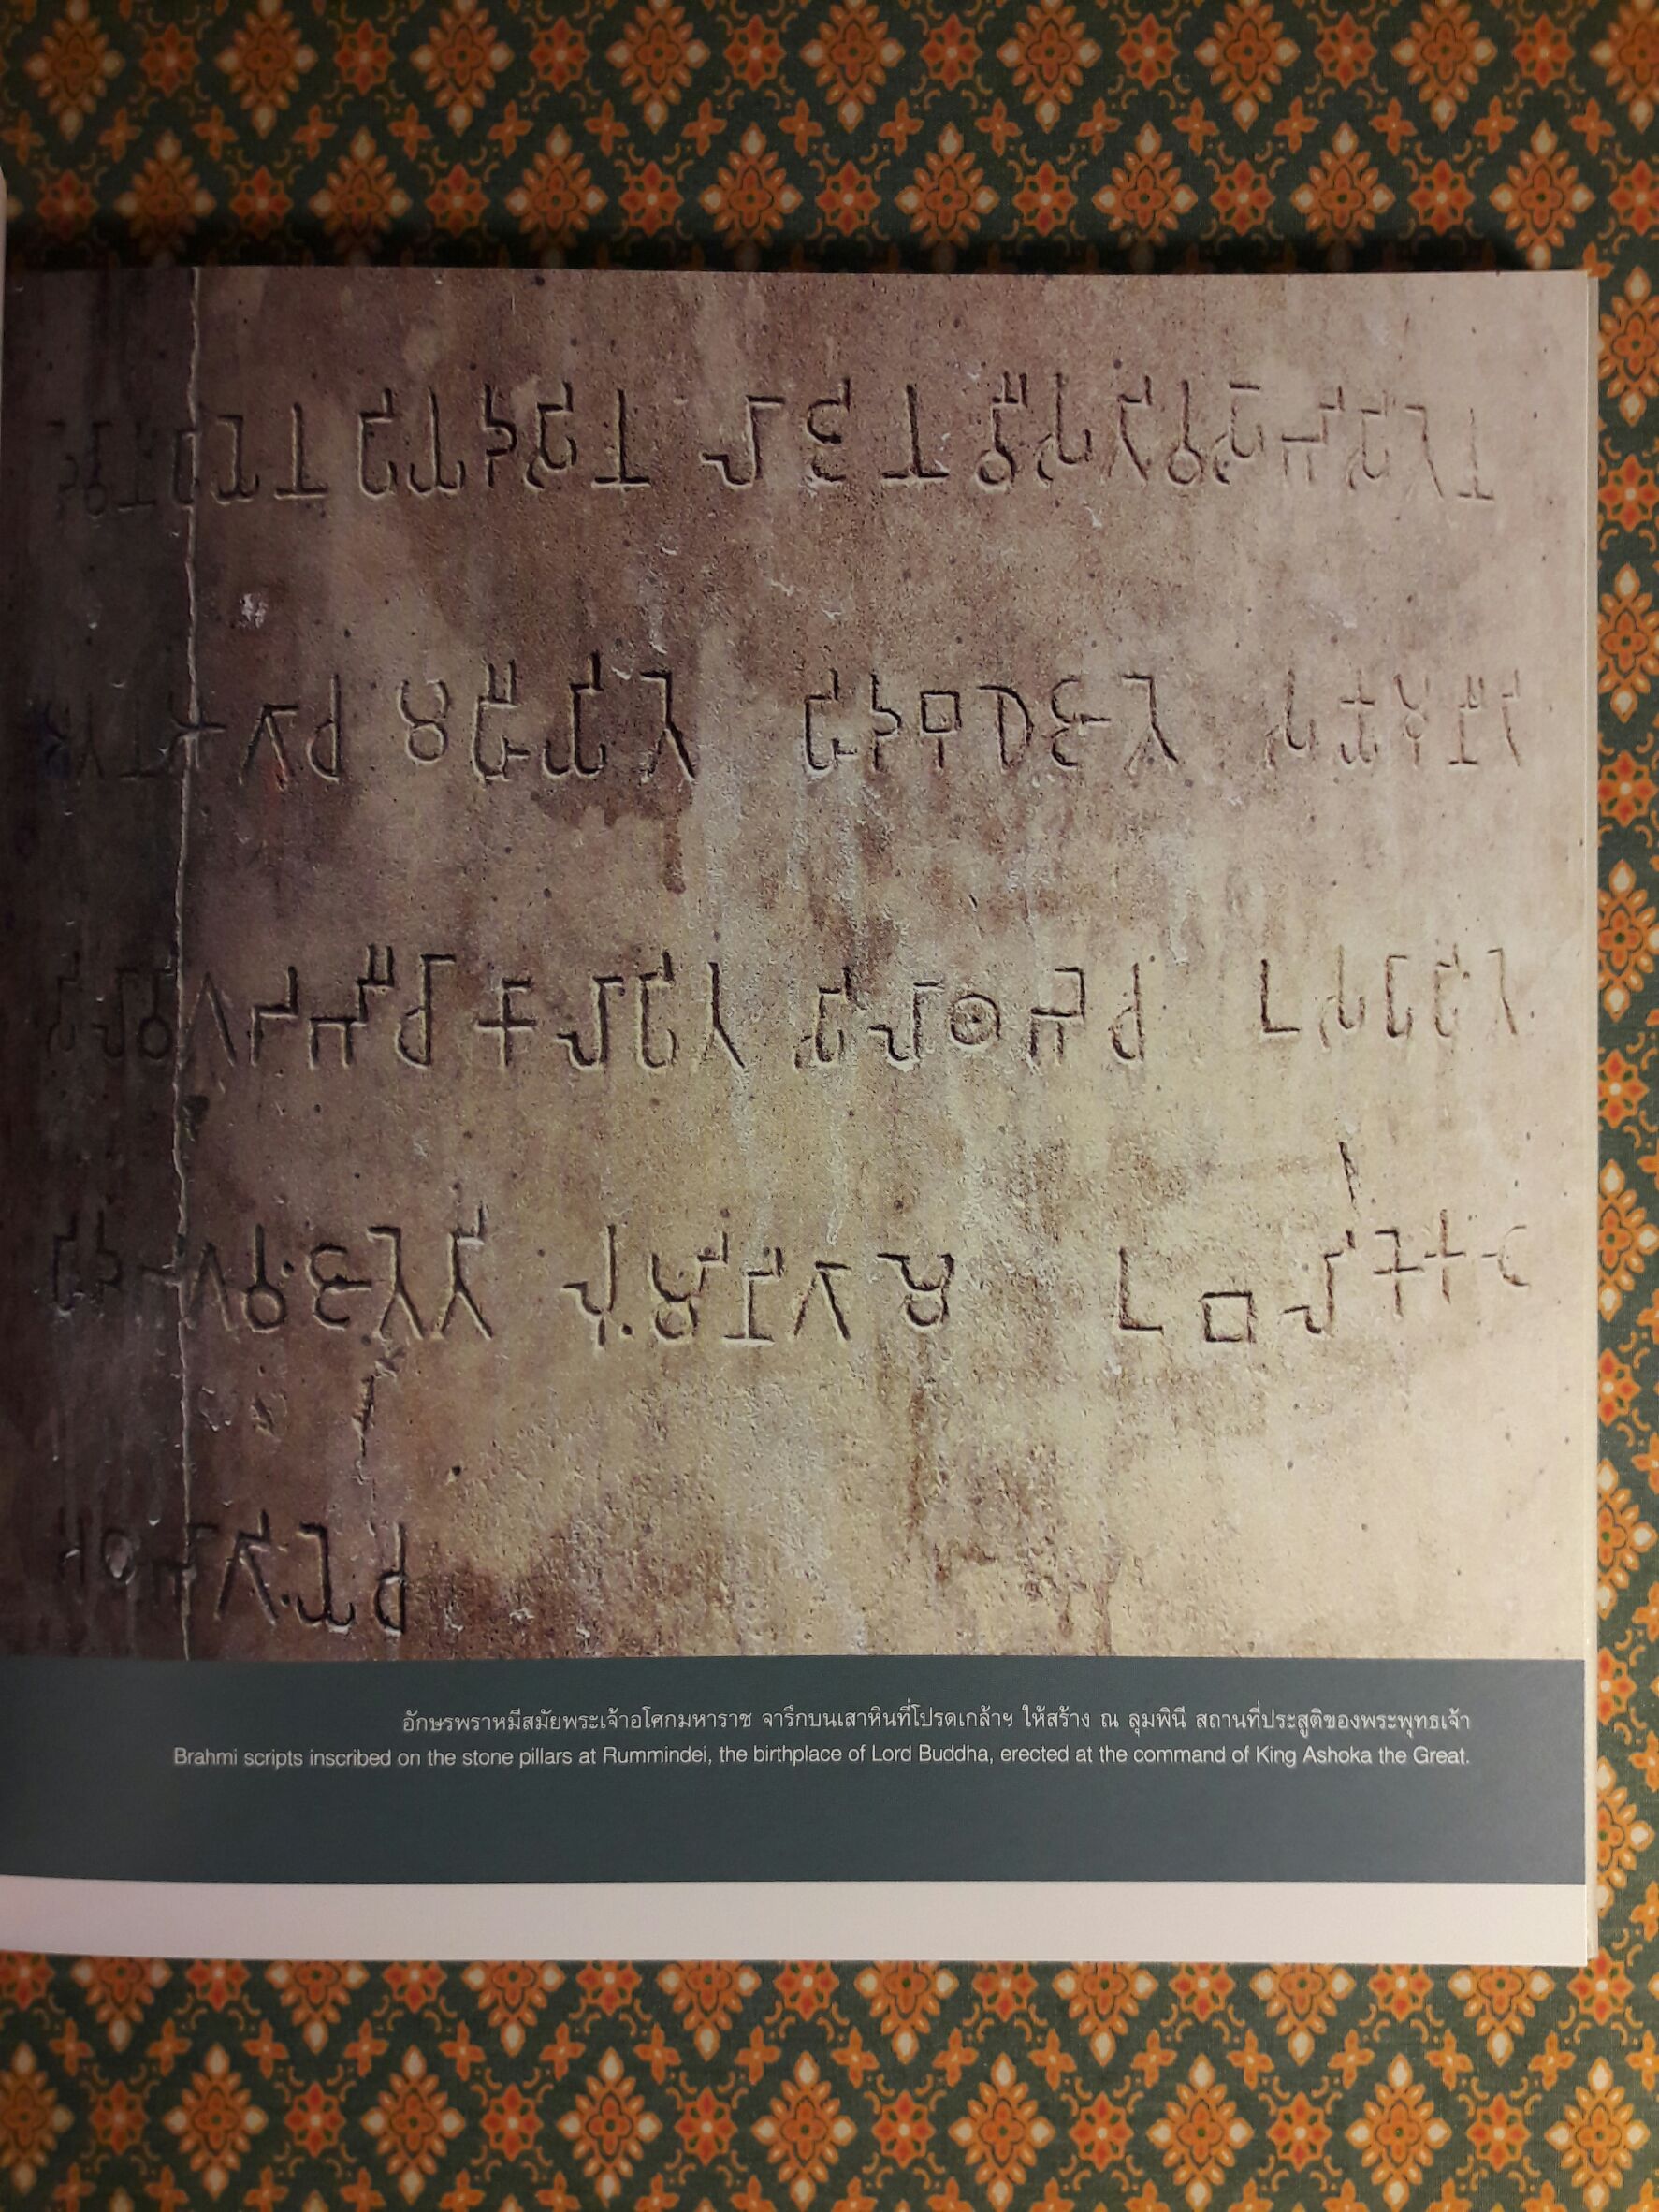 𑀤𑁂𑀯𑀸𑀦𑀁𑀧𑀺𑀬𑁂𑀦 𑀧𑀺𑀬𑀤𑀲𑀺𑀦 𑀮𑀸𑀚𑀺𑀦 𑀯𑀻𑀲𑀢𑀺𑀯𑀲𑀸𑀪𑀺𑀲𑀺𑀢𑁂𑀦
𑀅𑀢𑀦 𑀆𑀕𑀸𑀘 𑀫𑀳𑀻𑀬𑀺𑀢𑁂 𑀳𑀺𑀤 𑀩𑀼𑀥𑁂 𑀚𑀸𑀢𑁂 𑀲𑀓𑁆𑀬𑀫𑀼𑀦𑀻𑀢𑀺
𑀲𑀺𑀮𑀸𑀯𑀺𑀕𑀟𑀪𑀻𑀘𑀸𑀓𑀸𑀮𑀸𑀧𑀺𑀢 𑀲𑀺𑀮𑀸𑀣𑀪𑁂𑀘 𑀉𑀲𑀧𑀸𑀧𑀺𑀢𑁂
𑀳𑀺𑀤𑀪𑀕𑀯𑀁𑀚𑀸𑀢𑁂𑀢𑀺 𑀮𑀼𑀁𑀫𑀺𑀦𑀺𑀕𑀸𑀫𑁂 𑀉𑀩𑀮𑀺𑀓𑁂𑀓𑀝𑁂
𑀅𑀞𑀪𑀸𑀕𑀺𑀬𑁂𑀘
อักษรพราหมีสมัยพระเจ้าอโศกมหาราช จารึกบนเสาหินที่โปรดเกล้าฯ ให้สร้าง ณ ลุมพินี สถานที่ประสูติของพระพุทธเจ้า
Brahmi scripts inscribed on the stone pillars at Rummindei, the birthplace of Lord Buddha, erected at the command of King Ashoka the Great.